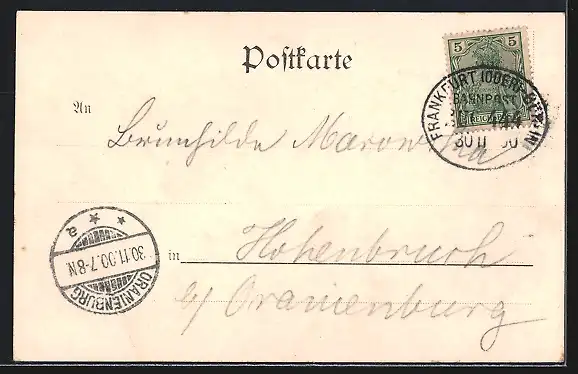 Postkarte
5 5
REICHSPOST
FRANKFURT (ODER)-BERLIN
BAHNPOST
30 11 00
An
Brunhilde
in Hohenbruch
b/ Oranienburg
ORANIENBURG
30.11.00.7-8N.
* * a